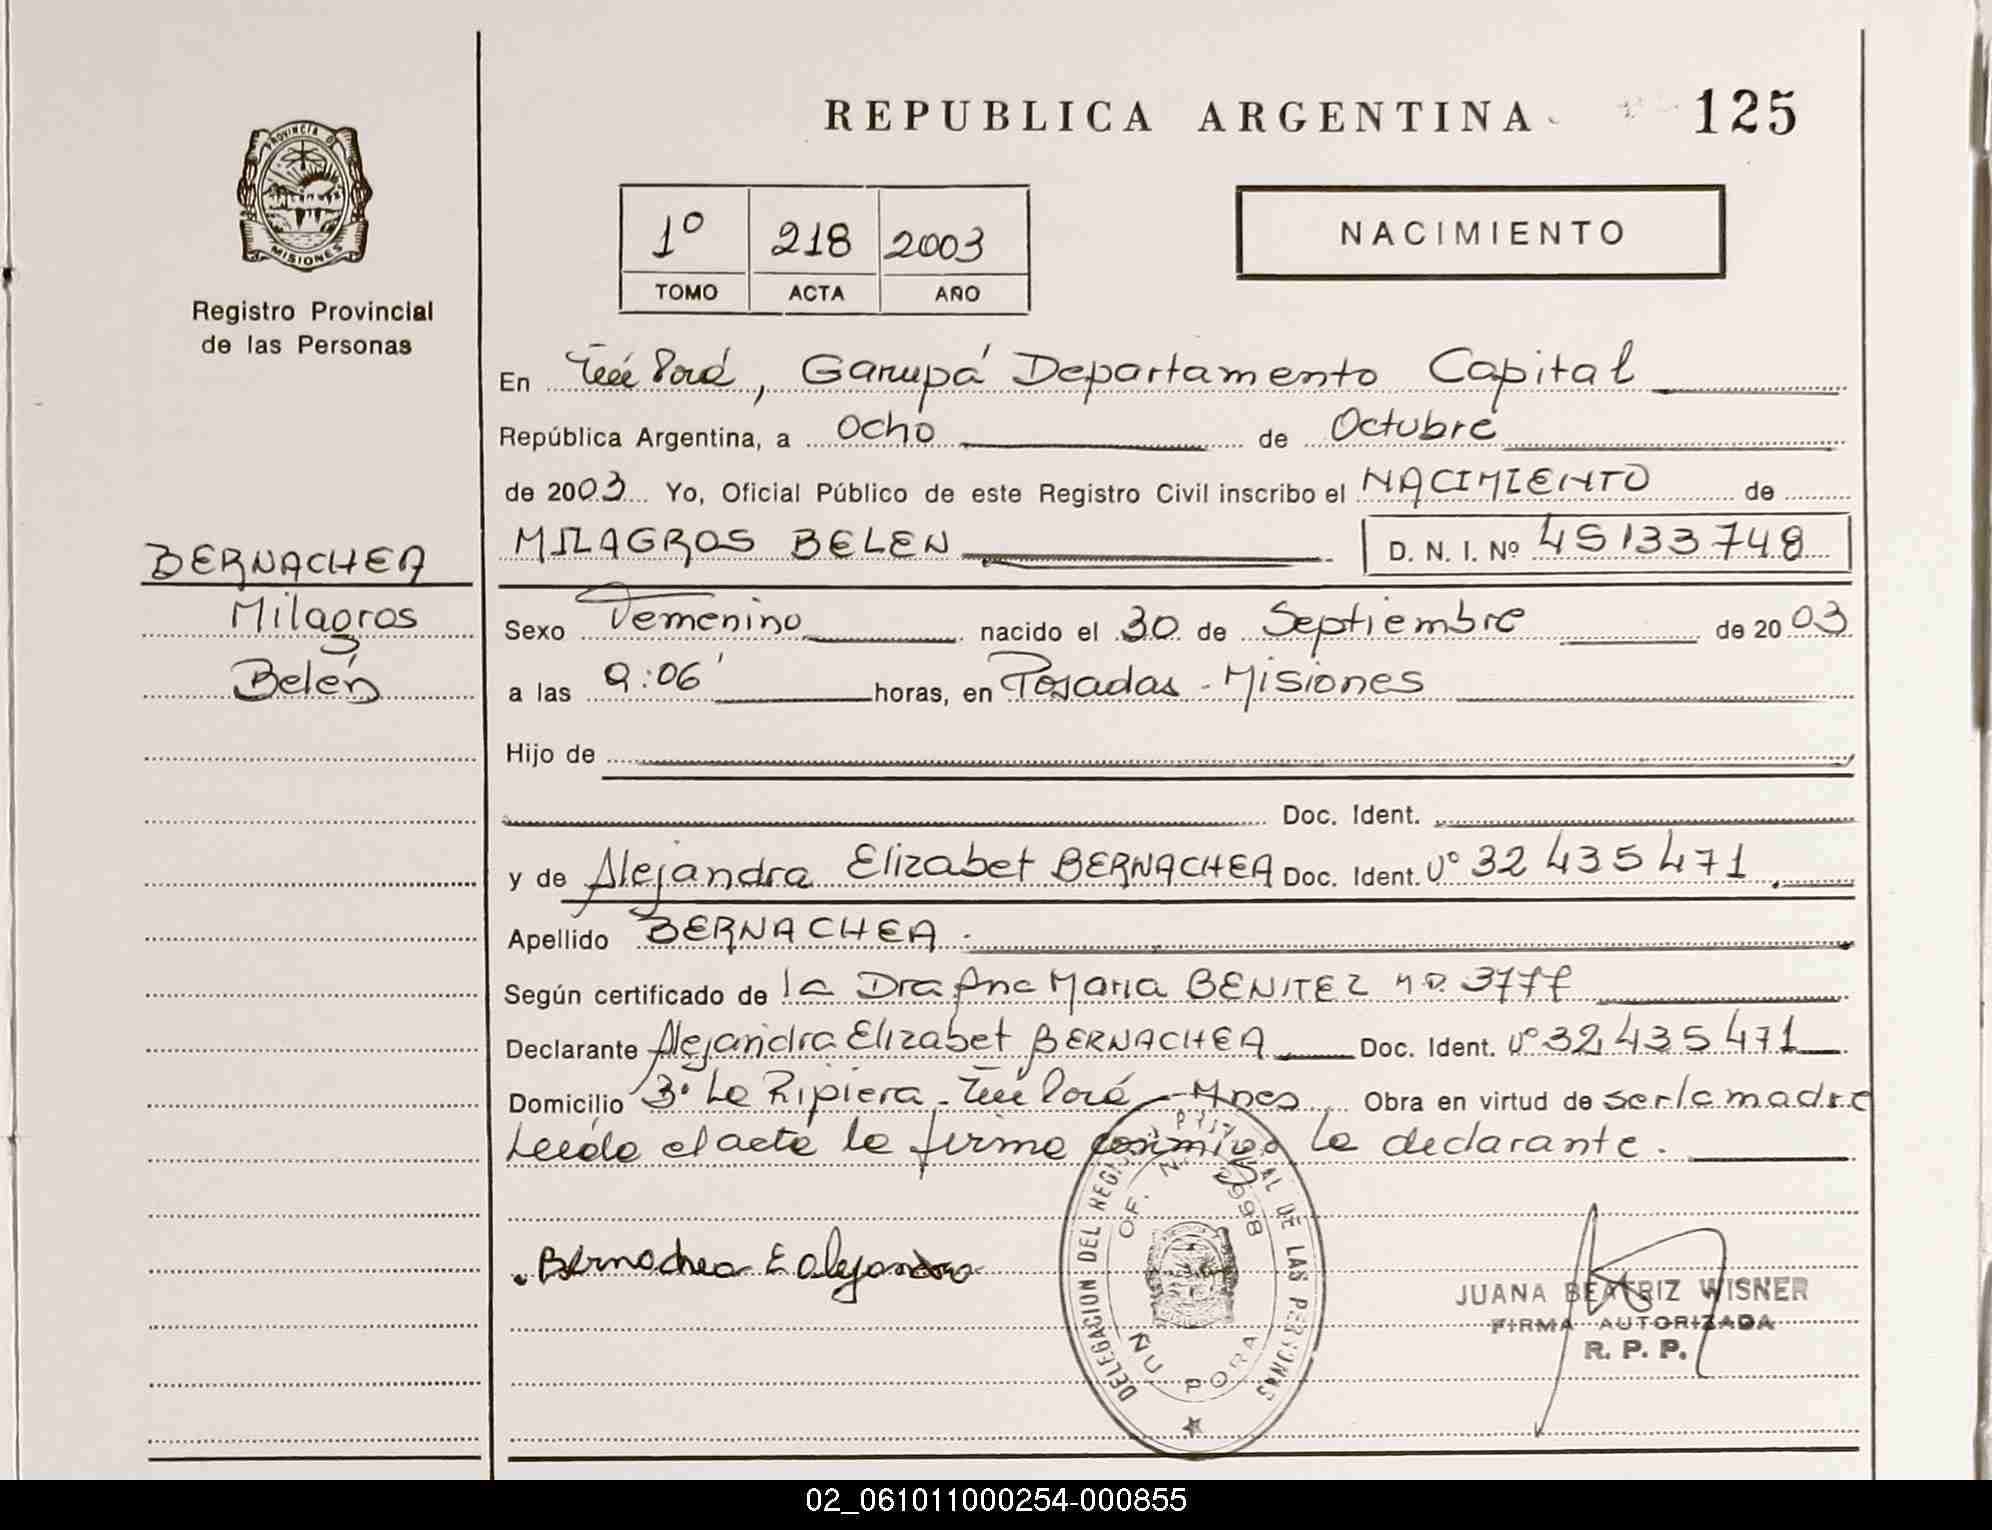 REPUBLICA ARGENTINA
125
PROVINCIA DE
MISIONES
Registro Provincial
de las Personas
1º 218 2003
TOMO ACTA AÑO
NACIMIENTO
En Ñu Porá, Garupá Departamento Capital
República Argentina, a Ocho de Octubre
de 2003 Yo, Oficial Público de este Registro Civil inscribo el NACIMIENTO de
MILAGROS BELEN D. N. I. Nº 45133748
BERNACHEA
Milagros
Belén
Sexo Femenino nacido el 30 de Septiembre de 2003
a las 9:06' horas, en Posadas - Misiones
Hijo de
Doc. Ident.
y de Alejandra Elizabet BERNACHEA Doc. Ident. Nº 32 435 471
Apellido BERNACHEA.
Según certificado de la Dra Ana Maria BENITEZ M.P. 3777
Declarante Alejandra Elizabet BERNACHEA Doc. Ident. Nº 32,435 471
Domicilio Bº La Ripiera - Ñu Porá - Mnes Obra en virtud de ser la madre
Leída el acta la firma conmigo la declarante.
Bernachea E alejandra
DELEGACION DEL REGISTRO PROVINCIAL DE LAS PERSONAS
OF. Nº 3998
ÑU PORA
JUANA BEATRIZ WISNER
FIRMA AUTORIZADA
R. P. P.
02_061011000254-000855